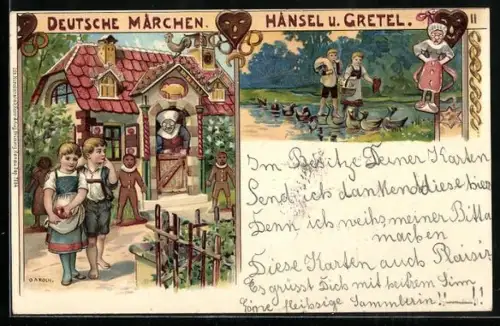 DEUTSCHE MÄRCHEN.
HÄNSEL U. GRETEL.
II
Im Besitze Deiner Karten
Send ich dankend diese hier
Denn ich weiß meiner Bitte
machen
Diese Karten auch Plaisir
Es grüsst Dich mit heitrem Sinn
Eine fleißige Sammlerin!!—!!